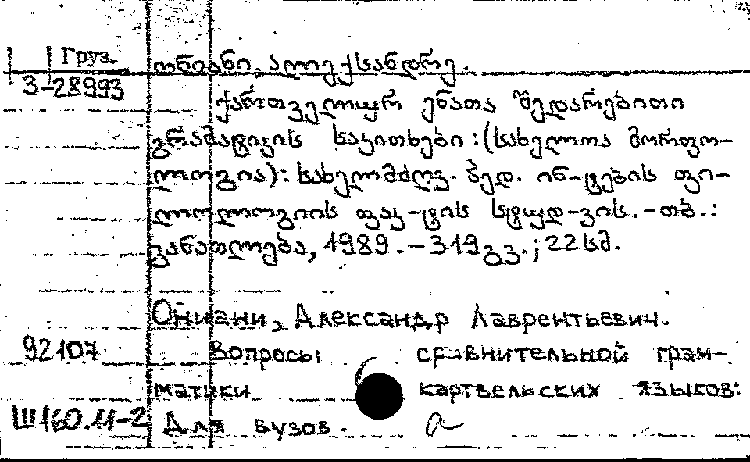 Груз.
ონიანი, ალექსანდრე.
3-28993
ქართველურ ენათა შედარებითი
გრამატიკის საკითხები: (სახელთა მორფო-
ლოგია): სახელმძღვ. პედ. ინ-ტების ფი-
ლოლოგიის ფაკ-ტის სტუდ-ვის. - თბ.:
განათლება, 1989. - 319 გვ.; 22 სმ.
Ониани, Александр Лаврентьевич.
92107 Вопросы сравнительной грам-
матики картвельских языков:
Ш160.11-2 Для вузов.